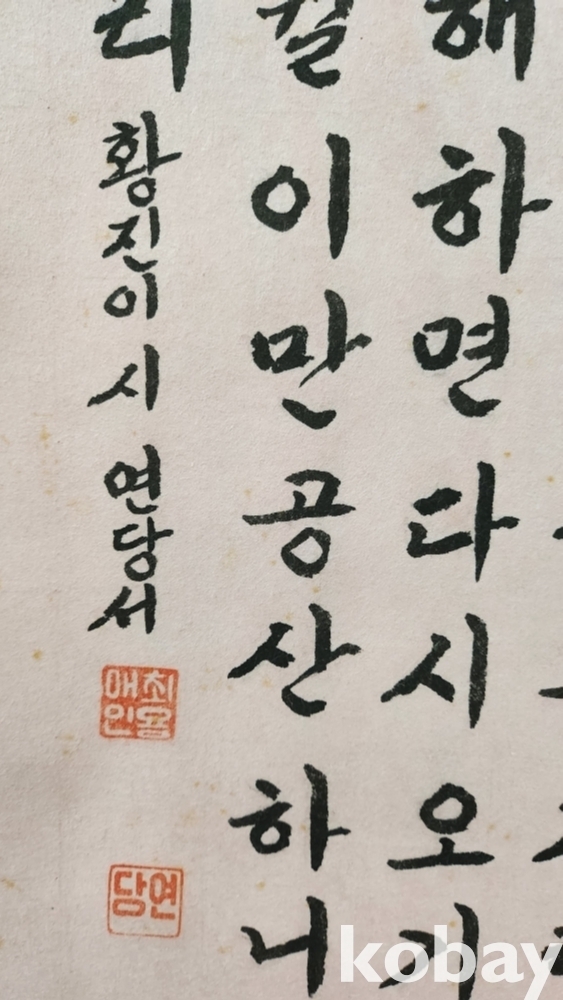 해하면다시오기
월이만공산하니
리 황진이 시 연당서
연당
kobay